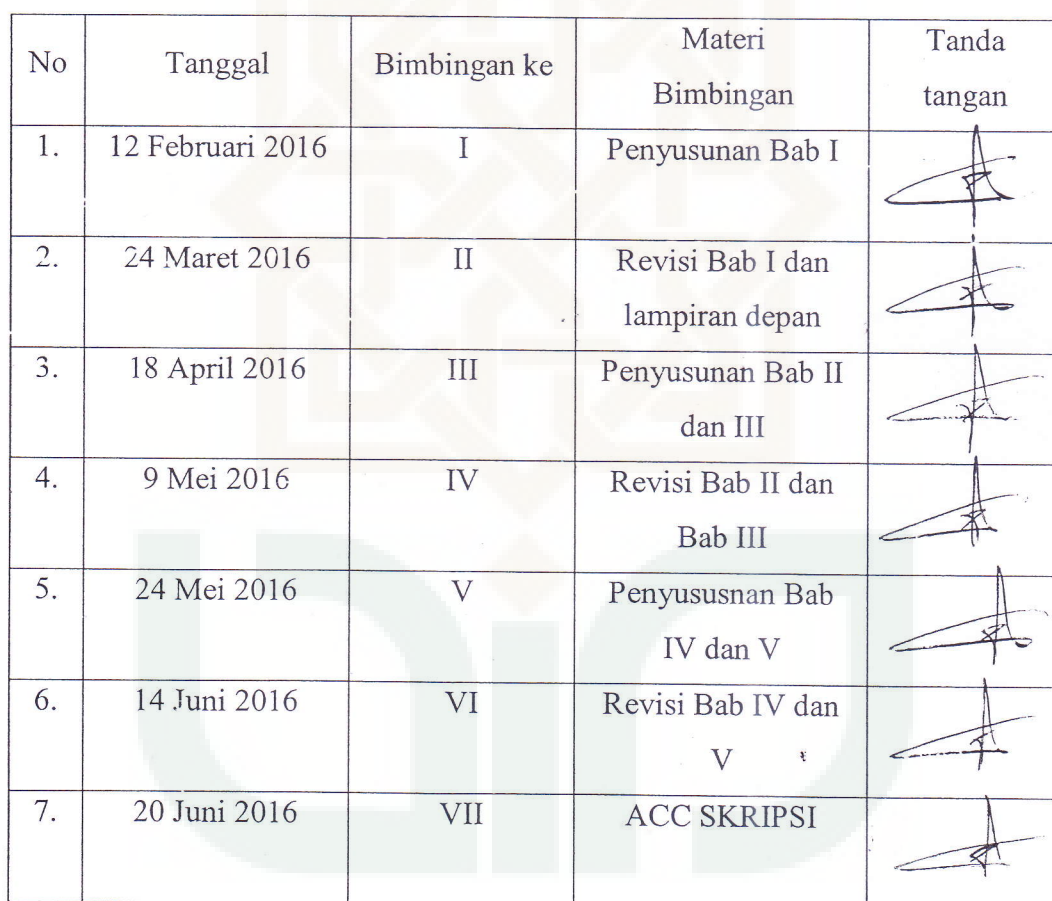 No Tanggal Bimbingan ke Materi Bimbingan Tanda tangan
1. 12 Februari 2016 I Penyusunan Bab I
2. 24 Maret 2016 II Revisi Bab I dan
lampiran depan
3. 18 April 2016 III Penyusunan Bab II
dan III
4. 9 Mei 2016 IV Revisi Bab II dan
Bab III
5. 24 Mei 2016 V Penyususnan Bab
IV dan V
6. 14 Juni 2016 VI Revisi Bab IV dan
V
7. 20 Juni 2016 VII ACC SKRIPSI